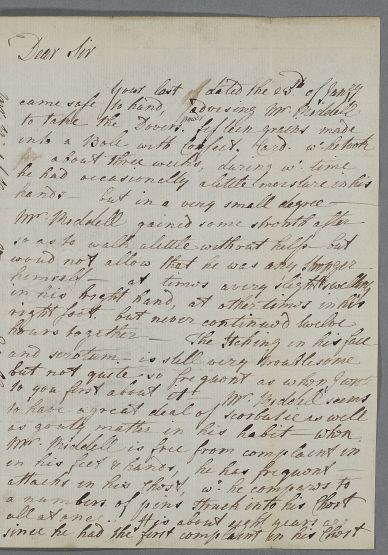 Dear Sir
Your last dated the 23th of Janry
came safe to hand, advising Mr. Riddell
to take the Dovers powr. fifteen grains made
into a Boll with Confect. Card. wc. he took
for about three weeks, during wc. time
he had occasionally a little moisture in his
hands — but in a very small degree —
Mr. Riddell gained some strenth after
so as to walk a little without help — but
woud not allow that he was any stronger
himself — at times a very slight swelling
in his right hand, at other times in his
right foot, but never continued twelve
hours together — The Itching in his face
and scrotum — is still very troublesome
but not quite so frequent as when I wrot
to you first about it — Mr. Riddell seems
to have a great deal of scorbutic as well
as gouty matter in his habit — when
Mr. Riddell is free from complaint in
in his feet & hands, he has frequent
attacks in his Chest, wc. he compairs to
a number of pins struck into his Chest
all at one — It is about eight years ago
since he had the first complaint in his Chest